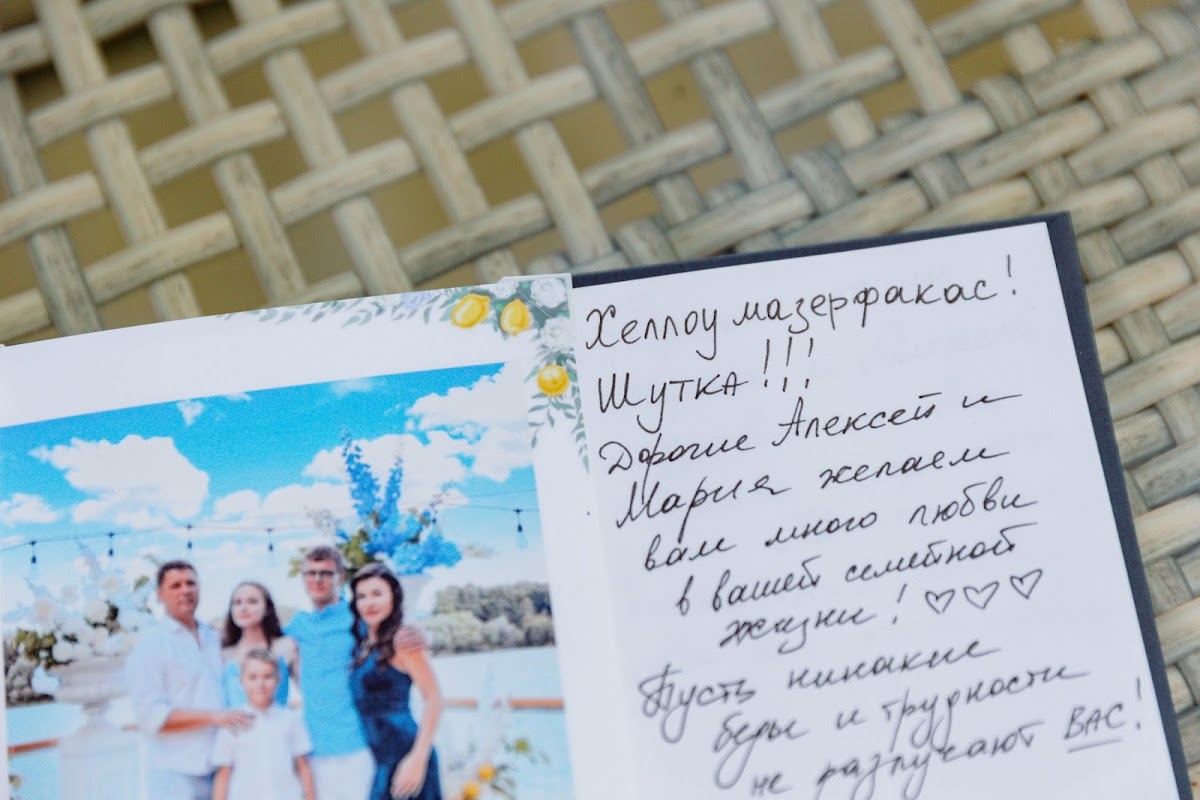 Хеллоу мазерфакас!
Шутка!!!
Дорогие Алексей и
Мария желаем
вам много любви
в вашей семейной
жизни! ♡♡♡
Пусть никакие
беды и трудности
не разлучают ВАС!